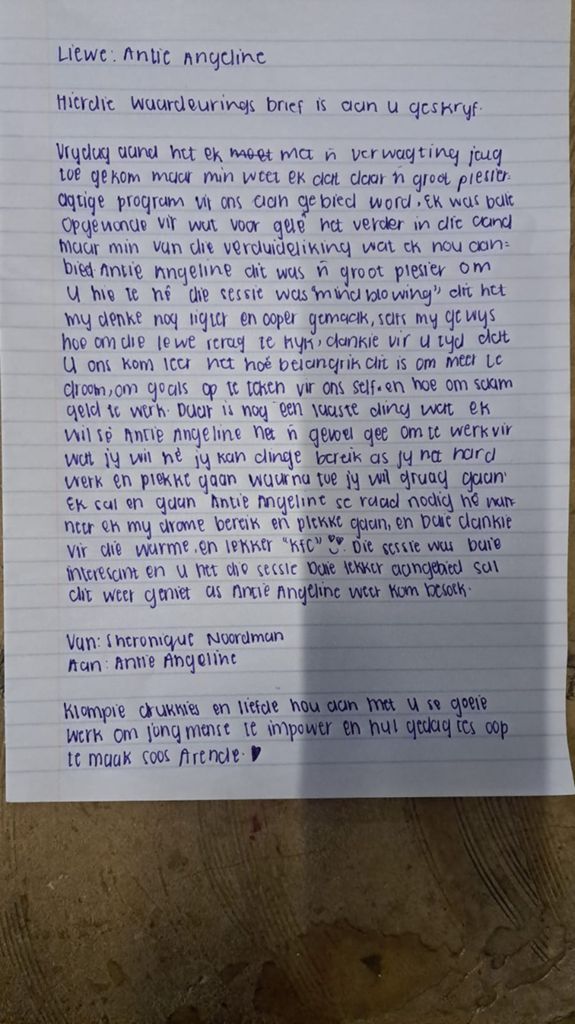 Liewe: Antie Angeline
Hierdie waardeurings brief is aan u geskryf.
Vrydag aand het ek moet met ñ verwagting jeug
toe gekom maar min weet ek dat daar ñ groot plesier-
agtige program vir ons aan gebied word. Ek was baie
opgewonde vir wat voor gelê het verder in die aand
maar min van die verduideliking wat ek nou aan=
bied. Antie Angeline dit was ñ groot plesier om
u hie te hê die sessie was "mind blowing" dit het
my denke nog ligter en ooper gemaak, selfs my gewys
hoe om die lewe terag te kyk, dankie vir u tyd dat
u ons kom leer het hoé belangrik dit is om meer te
droom, om goals op te teken vir ons self. en hoe om saam
geld te werk. Daar is nog een laaste ding wat ek
wil sê Antie Angeline het ñ gevoel gee om te werk vir
wat jy wil hê jy kan dinge bereik as jy net hard
werk en plekke gaan waarna toe jy wil graag gaan.
Ek sal en gaan Antie Angeline se raad nodig hê wan-
neer ek my drome bereik en plekke gaan, en baie dankie
vir die warme, en lekker "KFC" Die sessie was baie
interesant en u het die sessie baie lekker aangebied sal
dit weer geniet as Antie Angeline weer kom besoek.
Van: Sheronique Noordman
Aan: Antie Angeline
Klompie drukkies en liefde hou aan met u se goeie
werk om jong mense te impower en hul gedagtes oop
te maak soos Arende.